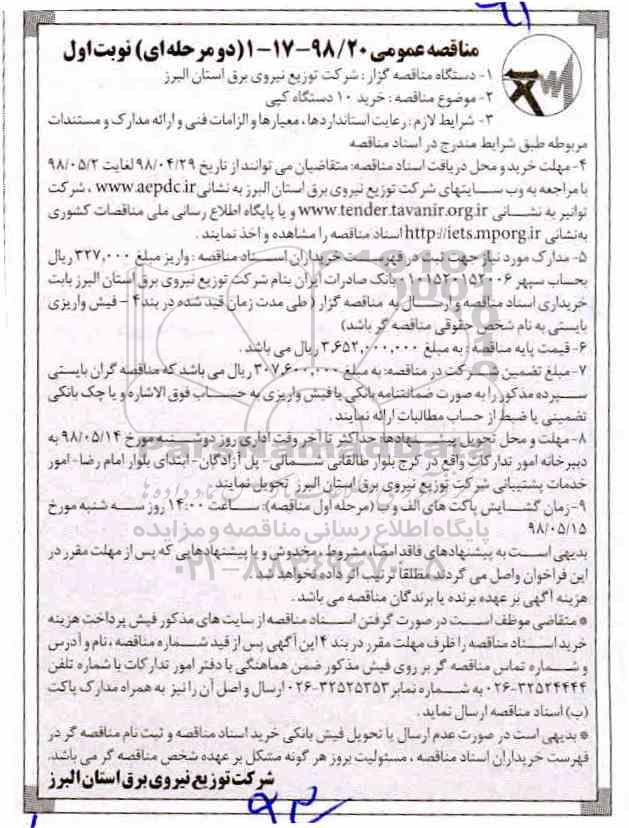 ۶۱
مناقصه عمومی ۹۸/۲۰-۱۷-۱ (دو مرحله‌ای) نوبت اول
۱- دستگاه مناقصه گزار : شرکت توزیع نیروی برق استان البرز
۲- موضوع مناقصه : خرید ۱۰ دستگاه کپی
۳- شرایط لازم : رعایت استانداردها ، معیارها و الزامات فنی و ارائه مدارک و مستندات
مربوطه طبق شرایط مندرج در اسناد مناقصه
۴- مهلت خرید و محل دریافت اسناد مناقصه: متقاضیان می توانند از تاریخ ۹۸/۰۴/۲۹ لغایت ۹۸/۰۵/۲
با مراجعه به وب سایتهای شرکت توزیع نیروی برق استان البرز به نشانی www.aepdc.ir ، شرکت
توانیر به نشانی www.tender.tavanir.org.ir و یا پایگاه اطلاع رسانی ملی مناقصات کشوری
به نشانی http://iets.mporg.ir اسناد مناقصه را مشاهده و اخذ نمایند .
۵- مدارک مورد نیاز جهت ثبت در فهرست خریداران اسناد مناقصه : واریز مبلغ ۳۲۷,۰۰۰ ریال
بحساب سپهر بانک صادرات ایران بنام شرکت توزیع نیروی برق استان البرز بابت
خریداری اسناد مناقصه و ارسال به مناقصه گزار ( طی مدت زمان قید شده در بند ۴ - فیش واریزی
بایستی به نام شخص حقوقی مناقصه گر باشد)
۶- قیمت پایه مناقصه : به مبلغ ۳,۶۵۲,۰۰۰,۰۰۰ ریال می باشد .
۷- مبلغ تضمین شرکت در مناقصه: به مبلغ ۳۰۷,۶۰۰,۰۰۰ ریال می باشد که مناقصه گران بایستی
سپرده مذکور را به صورت ضمانتنامه بانکی یا فیش واریزی به حساب فوق الاشاره و یا چک بانکی
تضمینی یا ضبط از حساب مطالبات ارائه نمایند .
۸- مهلت و محل تحویل پیشنهادها: حداکثر تا آخر وقت اداری روز دوشنبه مورخ ۹۸/۰۵/۱۴ به
دبیرخانه امور تدارکات واقع در کرج بلوار طالقانی شمالی- پل آزادگان- ابتدای بلوار امام رضا- امور
خدمات پشتیبانی شرکت توزیع نیروی برق استان البرز تحویل نمایند .
۹- زمان گشایش پاکت های الف و ب (مرحله اول مناقصه): ساعت ۱۴:۰۰ روز سه شنبه مورخ
۹۸/۰۵/۱۵
بدیهی است به پیشنهادهای فاقد امضا، مشروط ، مخدوش و یا پیشنهادهایی که پس از مهلت مقرر در
این فراخوان واصل می گردند مطلقا ترتیب اثر داده نخواهد شد .
هزینه آگهی بر عهده برنده یا برندگان مناقصه می باشد .
* متقاضی موظف است در صورت گرفتن اسناد مناقصه از سایت های مذکور فیش پرداخت هزینه
خرید اسناد مناقصه را ظرف مهلت مقرر در بند ۴ این آگهی پس از قید شماره مناقصه ، نام و آدرس
و شماره تماس مناقصه گر بر روی فیش مذکور ضمن هماهنگی با دفتر امور تدارکات با شماره تلفن
۰۲۶-۳۲۵۲۴۴۴۴ به شماره نمابر ۰۲۶-۳۲۵۲۵۳۵۳ ارسال و اصل آن را نیز به همراه مدارک پاکت
(ب) اسناد مناقصه ارسال نماید .
* بدیهی است در صورت عدم ارسال یا تحویل فیش بانکی خرید اسناد مناقصه و ثبت نام مناقصه گر در
فهرست خریداران اسناد مناقصه ، مسئولیت بروز هر گونه مشکل بر عهده شخص مناقصه گر می باشد.
شرکت توزیع نیروی برق استان البرز
پایگاه اطلاع رسانی مناقصه و مزایده